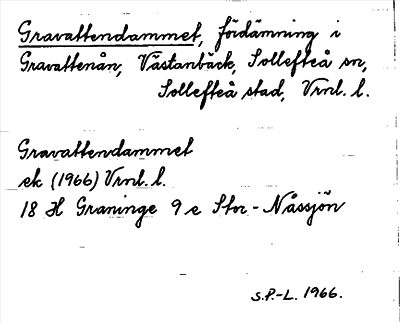 Gravattendammet, fördämning i
Gravattenån, Västanbäck, Sollefteå sn,
Sollefteå stad, Vrnl. l.
Gravattendammet
ek (1966) Vrnl. l.
18 H Graninge 9 e Stor-Nässjön
S.P.-L. 1966.